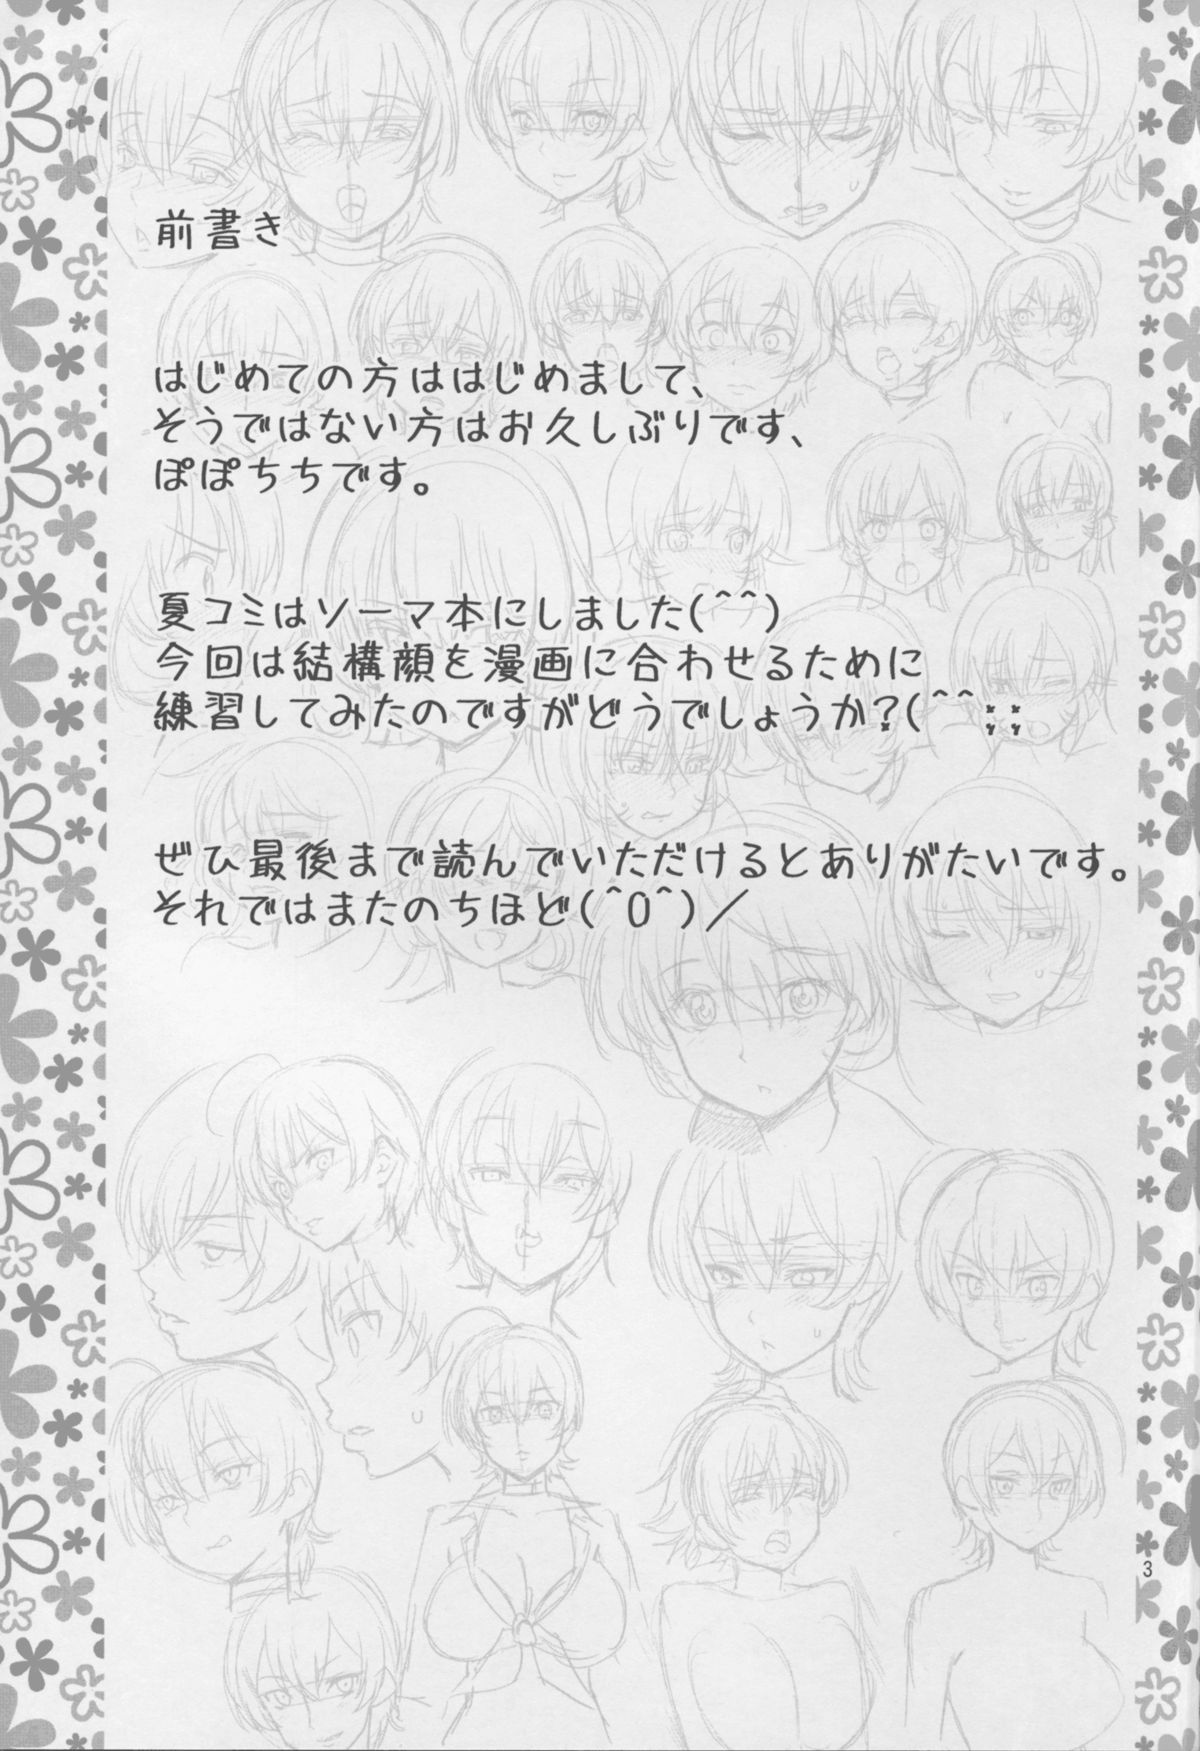 前書き
はじめての方ははじめまして、
そうではない方はお久しぶりです、
ぽぽちちです。
夏コミはソーマ本にしました(^^)
今回は結構顔を漫画に合わせるために
練習してみたのですがどうでしょうか?(^^;;
ぜひ最後まで読んでいただけるとありがたいです。
それではまたのちほど(^O^)／
3